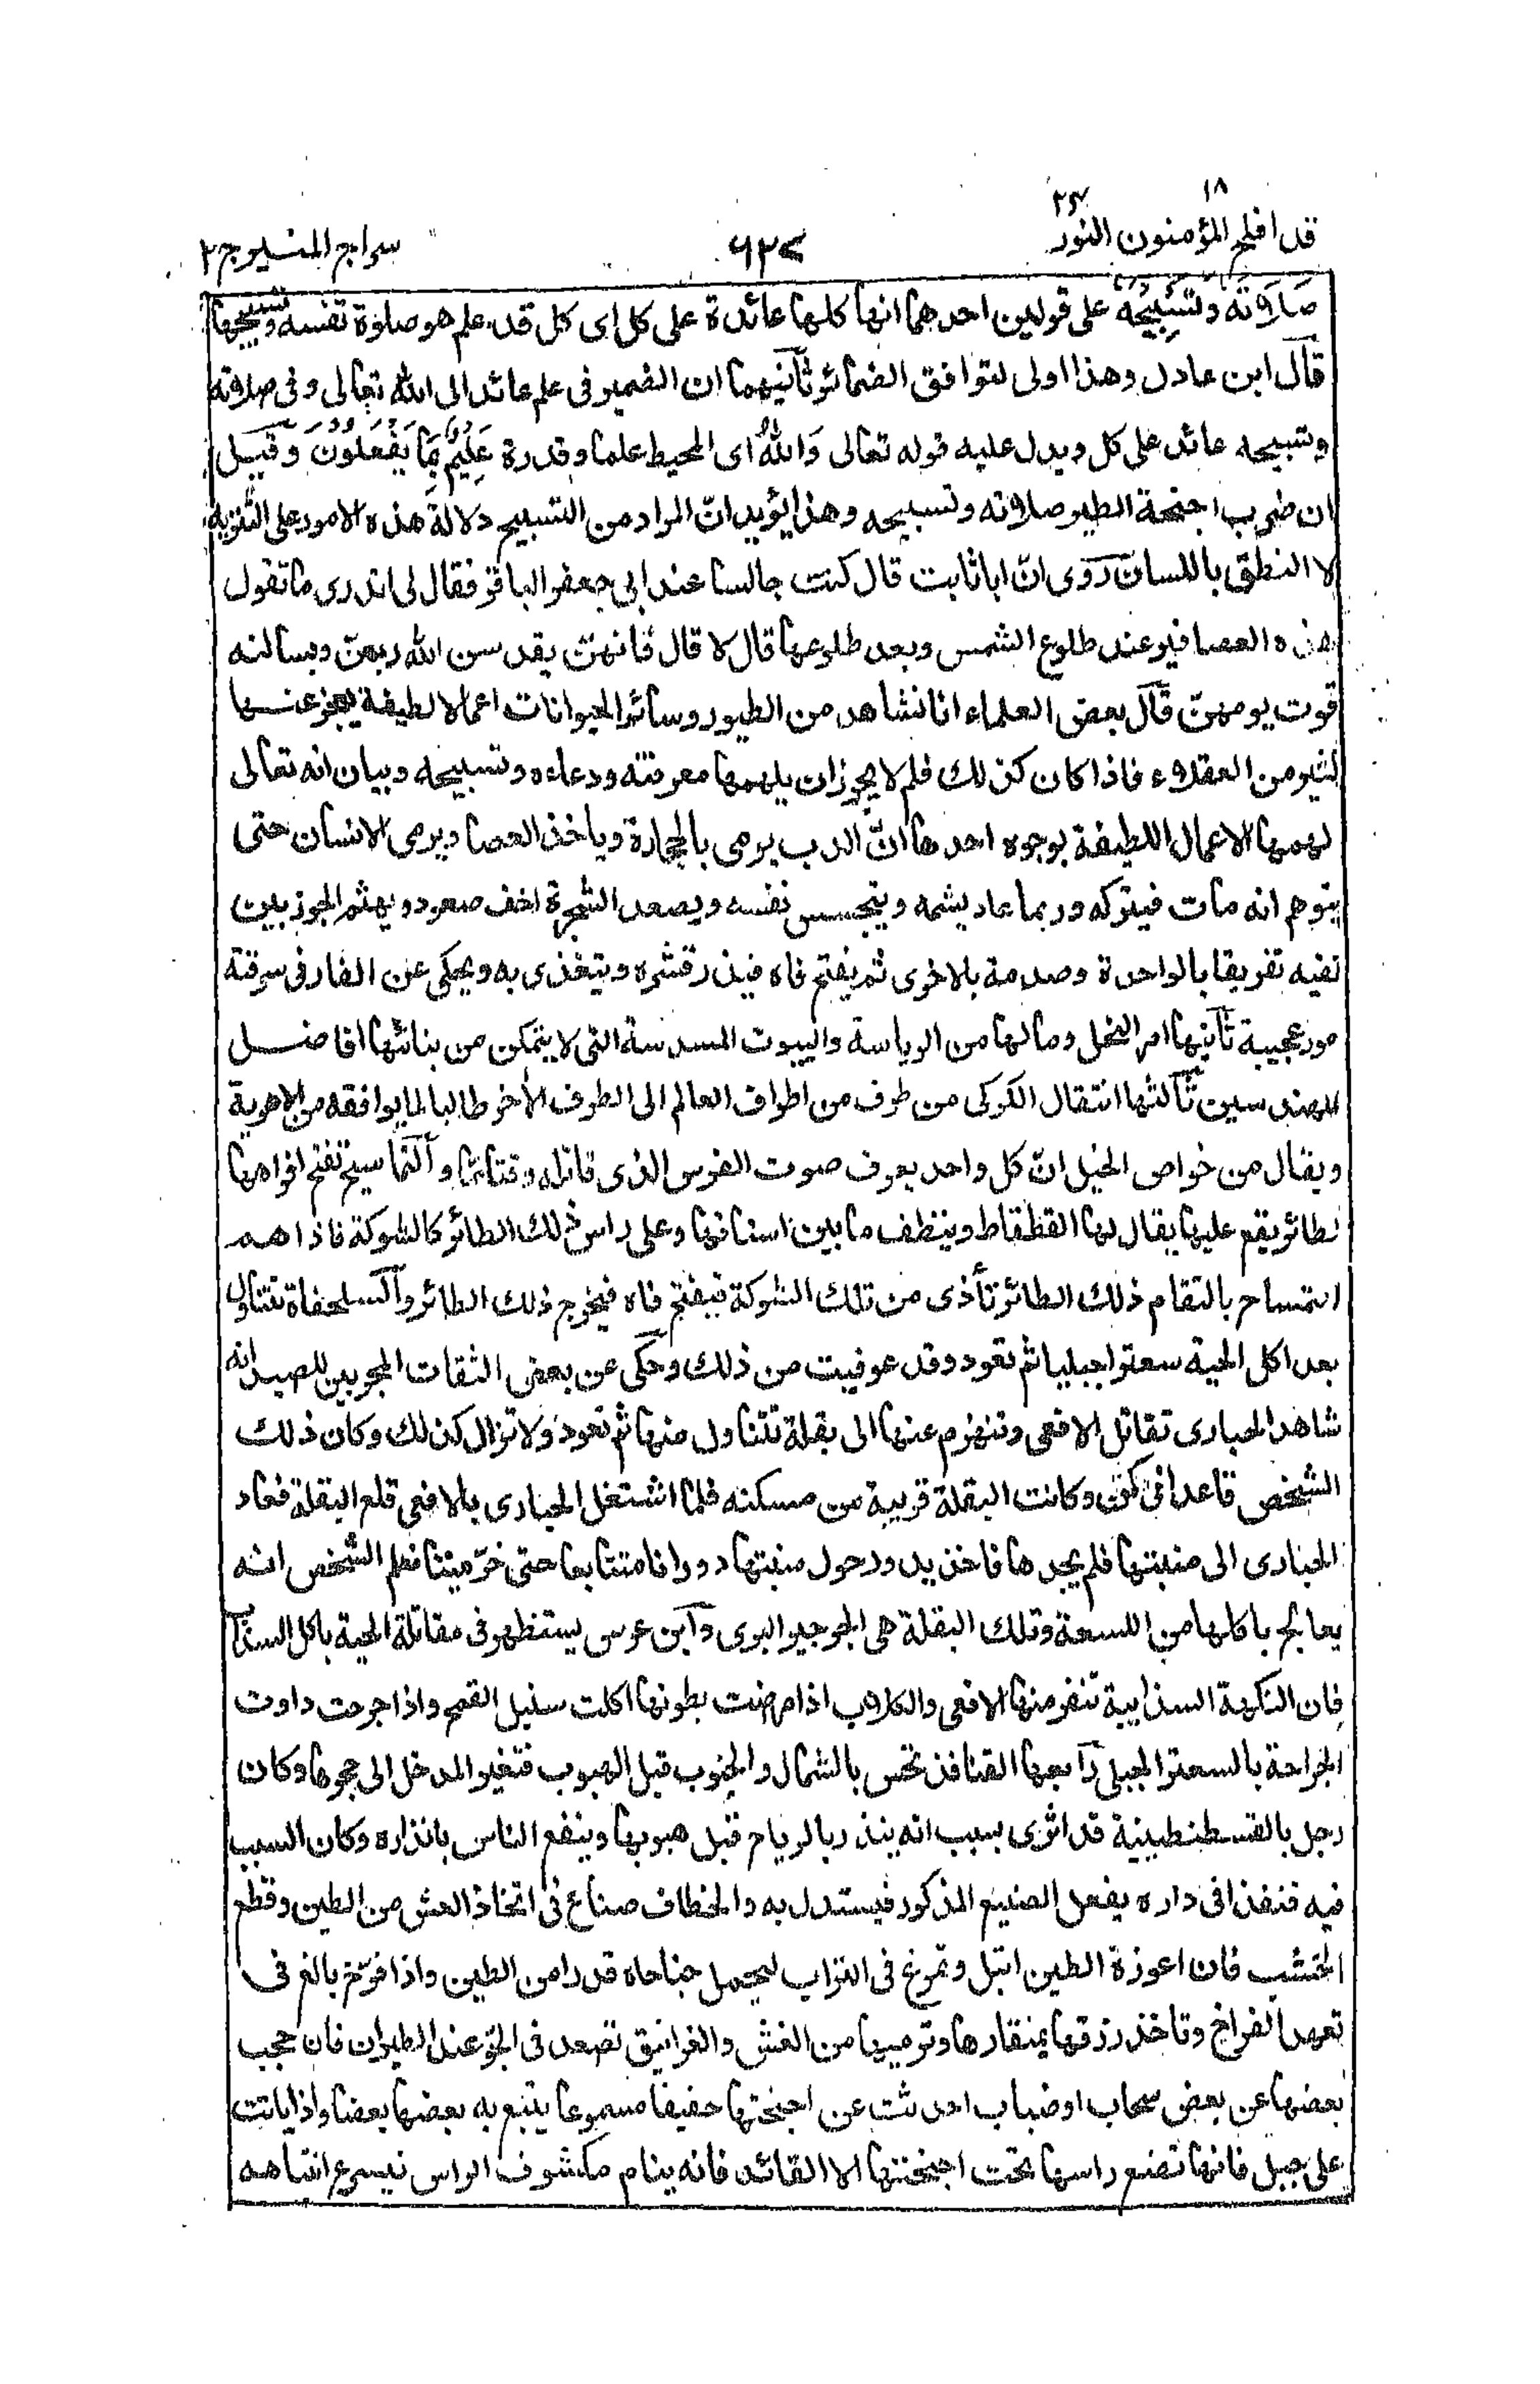 ١٨ ٢٤
قد افلح المؤمنون النور ٦٢٧ سراج المنير ج ٢
صَلَاتَهُ وَتَسْبِيحَهُ على قولين احدهما انها كلها عائدة على كل اى كل قد علم هو صلوة نفسه وتسبيحها
قال ابن عادل وهذا اولى لتوافق الضمائر ثانيهما ان الضمير فى علم عائد الى الله تعالى وفى صلاته
وتسبيحه عائد على كل ويدل عليه قوله تعالى وَاللّٰهُ اى المحيط علما وقدرة عَلِيْمٌ بِمَا يَفْعَلُوْنَ وقيل
ان ضرب اجنحة الطير صلاته وتسبيحه وهذا يؤيد انّ المراد من التسبيح دلالة هذه الامور على التنزيه
لا النطق باللسان روى انّ ابا ثابت قال كنت جالسا عند ابى جعفر الباقر فقال لى اتدرى ما تقول
هذه العصافير عند طلوع الشمس وبعد طلوعها قال لا قال فانهنّ يقدسن الله ربهنّ ويسالنه
قوت يومهنّ قال بعض العلماء انا نشاهد من الطيور وسائر الحيوانات اعمالا لطيفة يعجز عنها
كثير من العقلاء فاذا كان كذلك فلم لا يجوز ان يلهمها معرفته ودعاءه وتسبيحه وبيان انه تعالى
لهمها الاعمال اللطيفة بوجوه احدها انّ الدب يرمى بالحجارة وياخذ العصا ويرمى الانسان حتى
يتوهم انه مات فيتركه وربما عاد يشمه ويتجسس نفسه ويصعد الشجرة اخف صعود ويهشم الجوز بين
كفيه تفريقا بالواحدة وصدمة بالاخرى ثم يفتح فاه فيذر قشره ويتغذى به ويحكى عن الفار فى سرقته
مور عجيبة ثانيها امر النحل وما لها من الرياسة والبيوت المسدسة التى لا يتمكن من بنائها افاضل
المهندسين ثالثها انتقال الكركى من طرف من اطراف العالم الى الطرف الأخر طالبا لما يوافقه من الاهوية
ويقال من خواص الخيل انّ كل واحد يعرف صوت الفرس الذى قاتله وقتا ما والتماسيح تفتح افواهها
لطائر يقع عليها يقال لها القطقاط وينظف ما بين اسنانها وعلى راس ذلك الطائر كالشوكة فاذا هم
التمساح بالتقام ذلك الطائر تأذى من تلك الشوكة فيفتح فاه فيخرج ذلك الطائر والسلحفاة تتناول
بعد اكل الحية سعترا جبليا ثم تعود وقد عوفيت من ذلك وحكى عن بعض الثقات المجربين للصيد انه
شاهد الحبارى تقاتل الافعى وتنهزم عنها الى بقلة تتناول منها ثم تعود ولا تزال كذلك وكان ذلك
الشخص قاعدا فى كنّ وكانت البقلة قريبة من مسكنه فلما اشتغل الحبارى بالافعى قلع البقلة فعاد
الحبارى الى منبتها فلم يجدها فاخذ يدور حول منبتها دورانا متتابعا حتى خرّ ميتا فعلم الشخص انه
يعالج باكلها من اللسعة وتلك البقلة هى الجرجير البرى وابن عرس يستظهر فى مقاتلة الحية باكل السذاب
فان النكهة السذابية تنفر منها الافعى والكلاب اذا مرضت بطونها اكلت سنبل القمح واذا جرحت داوت
الجراحة بالسعتر الجبلى رابعها القنافذ تحس بالشمال والجنوب قبل الهبوب فتغير المدخل الى جحرها وكان
رجل بالقسطنطينية قد اثرى بسبب انه ينذر بالرياح قبل هبوبها وينفع الناس بانذاره وكان السبب
فيه قنفذا فى داره يفعل الصنيع المذكور فيستدل به والخطاف صناع فى اتخاذ العش من الطين وقطع
الخشب فان اعوزة الطين ابتل وتمرغ فى التراب ليحمل جناحاه قدرا من الطين واذا فرّخ بالغ فى
تعهد الفراخ وتاخذ رزقها بمنقارها وترميها من العش والغرانيق تصعد فى الجوّ عند الطيران فان حجب
بعضها عن بعض سحاب او ضباب احدثت عن اجنحتها حفيفا مسموعا يتبع به بعضها بعضا واذا باتت
على جبل فانها تضع راسها تحت اجنحتها الا القائد فانه ينام مكشوف الراس فيسرع انتباهه